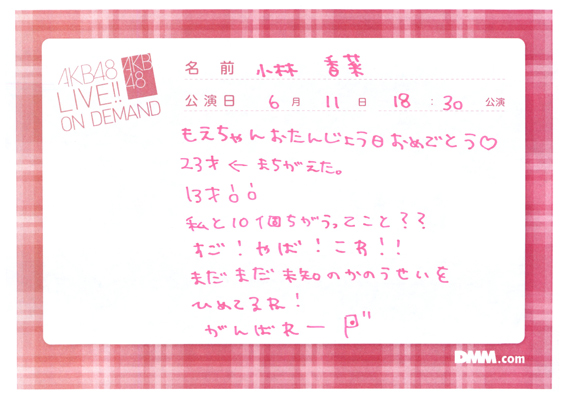 AKB48
LIVE!!
ON DEMAND
AKB
48
名前 小林 香菜
公演日 6月 11日 18:30 公演
もえちゃんおたんじょう日おめでとう♡
23才 ← まちがえた。
13才
私と10個ちがうってこと??
すご!やば!こわ!!
まだまだ未知のかのうせいを
ひめてるね!
がんばれー
DMM.com